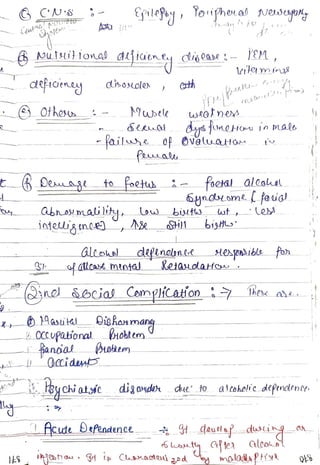 C.N.S :- Epilepsy, Peripheral Neuropathy
Nutritional deficiency disease :- PEM,
Vitamins
deficiency disorder,
Others :- Muscle weakness
- Sexual dysfunction in male
- failure of Ovaluation in
female
Demage to foetus :- foetal alcohol
Syndrome [ facial
abnormalility, low birth wt, less
intelligence], still birth
Alcohol dependence responsible for
of all case mental Retardation.
2nd Social Complication :→ There are.
Marital Disharmony
Occupational Problem
financial Problem
Accident
Psychiatric disorder due to alcoholic dependence.
:→
1. Acute Dependence → It develop during or
Shortly after alcohol
ingestion. It is characterized by maladaptive